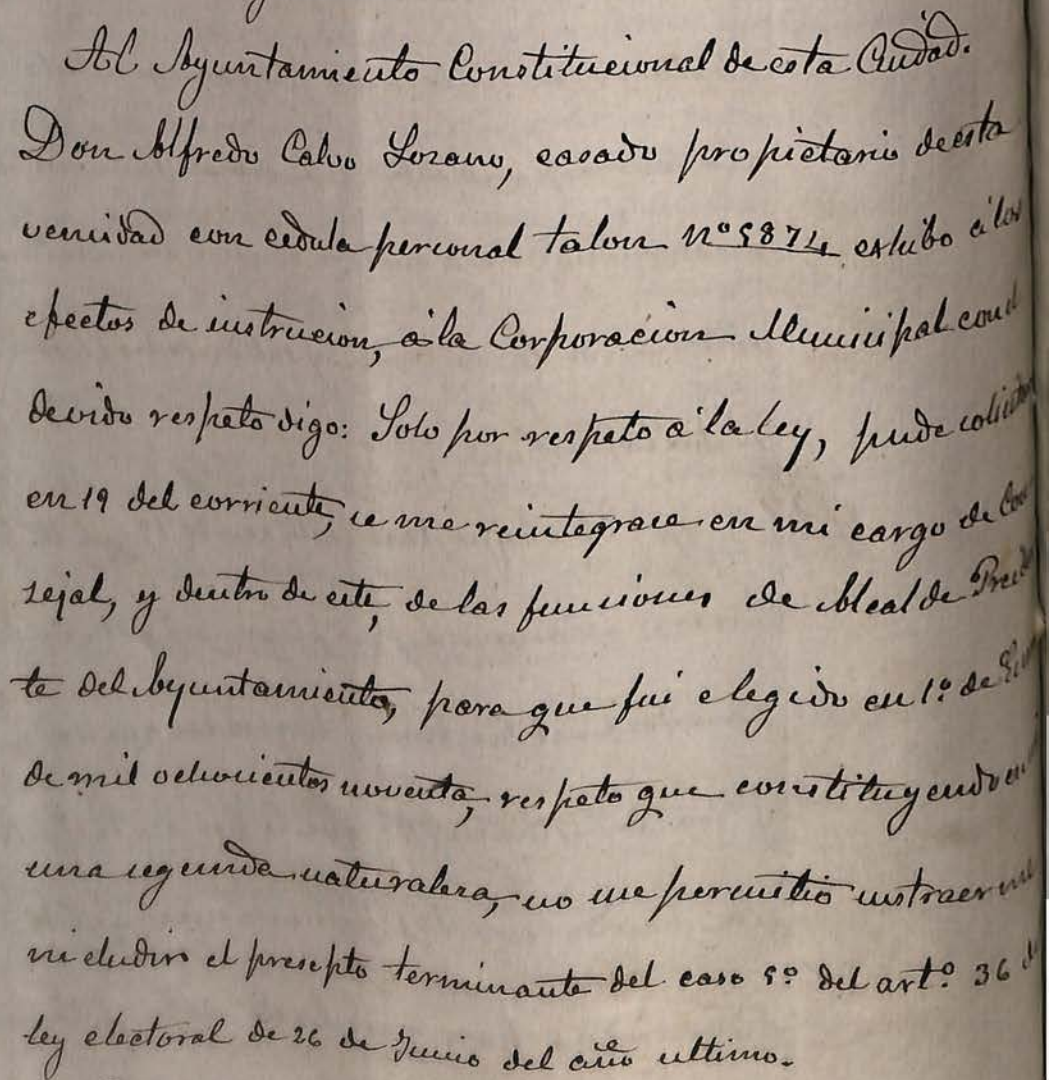 Al Ayuntamiento Constitucional de esta Ciudad.
Don Alfredo Calvo Lozano, casado propietario de esta
vecindad con cedula personal talon nº 5874 exhibo á los
efectos de instrucion, á la Corporacion Municipal con el
devido respeto digo: Solo por respeto á la ley, pude solicitar
en 19 del corriente, se me reintegrase en mi cargo de Con
sejal, y dentro de este, de las funciones de Alcalde Presiden
te del Ayuntamiento, para que fui elegido en 1º de Enero
de mil ochocientos noventa, respeto que constituyendo en mi
una segunda naturaleza, no me permitió sustraerme
ni eludir el presepto terminante del caso 5º del artº 36 de
ley electoral de 26 de Junio del año ultimo.